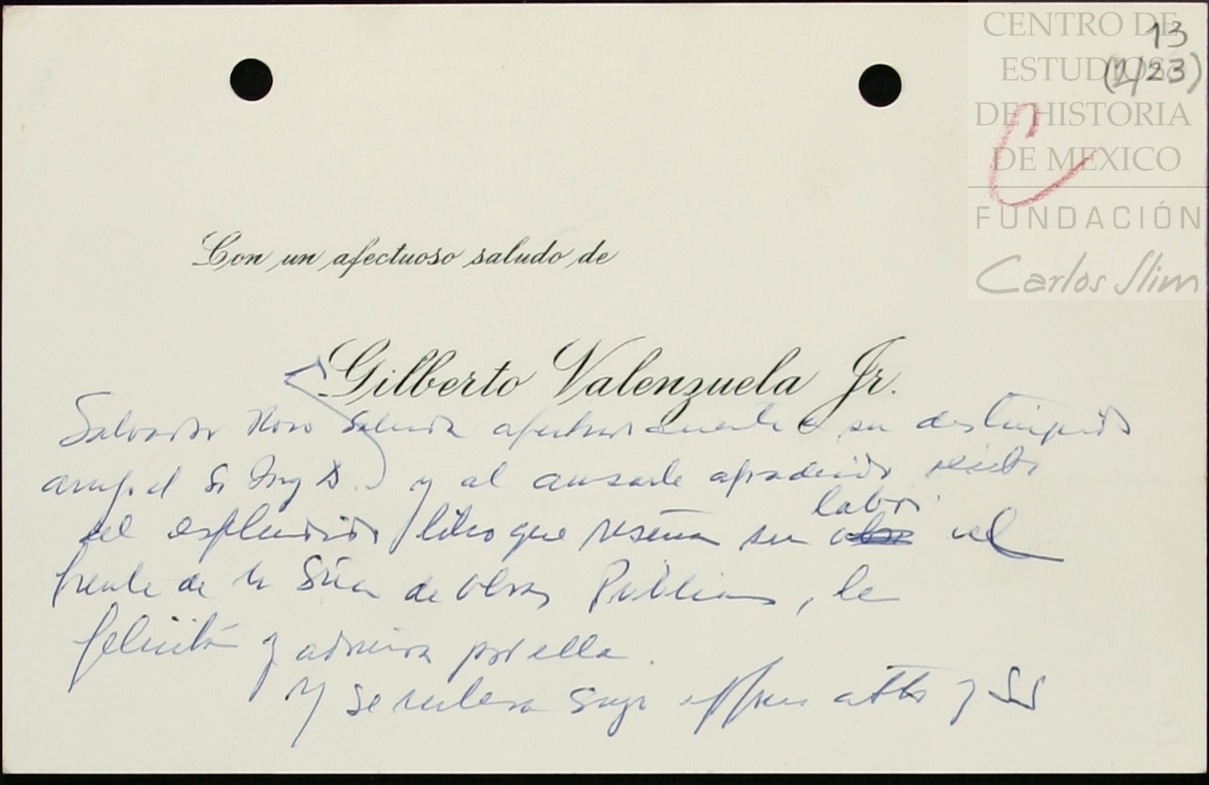 CENTRO DE
ESTUDIOS
DE HISTORIA
DE MEXICO
FUNDACIÓN
Carlos Slim
13
(2/23)
C
Con un afectuoso saludo de
Gilberto Valenzuela Jr.
Salvador Novo saluda afectuosamente a su distinguido
amigo el Sr Ing D. y al acusarle agradecido recibo
del espléndido libro que reseña su labor al
frente de la Sría de Obras Públicas, le
felicita y admira por ella.
Y se reitera suyo affmo atto y SS